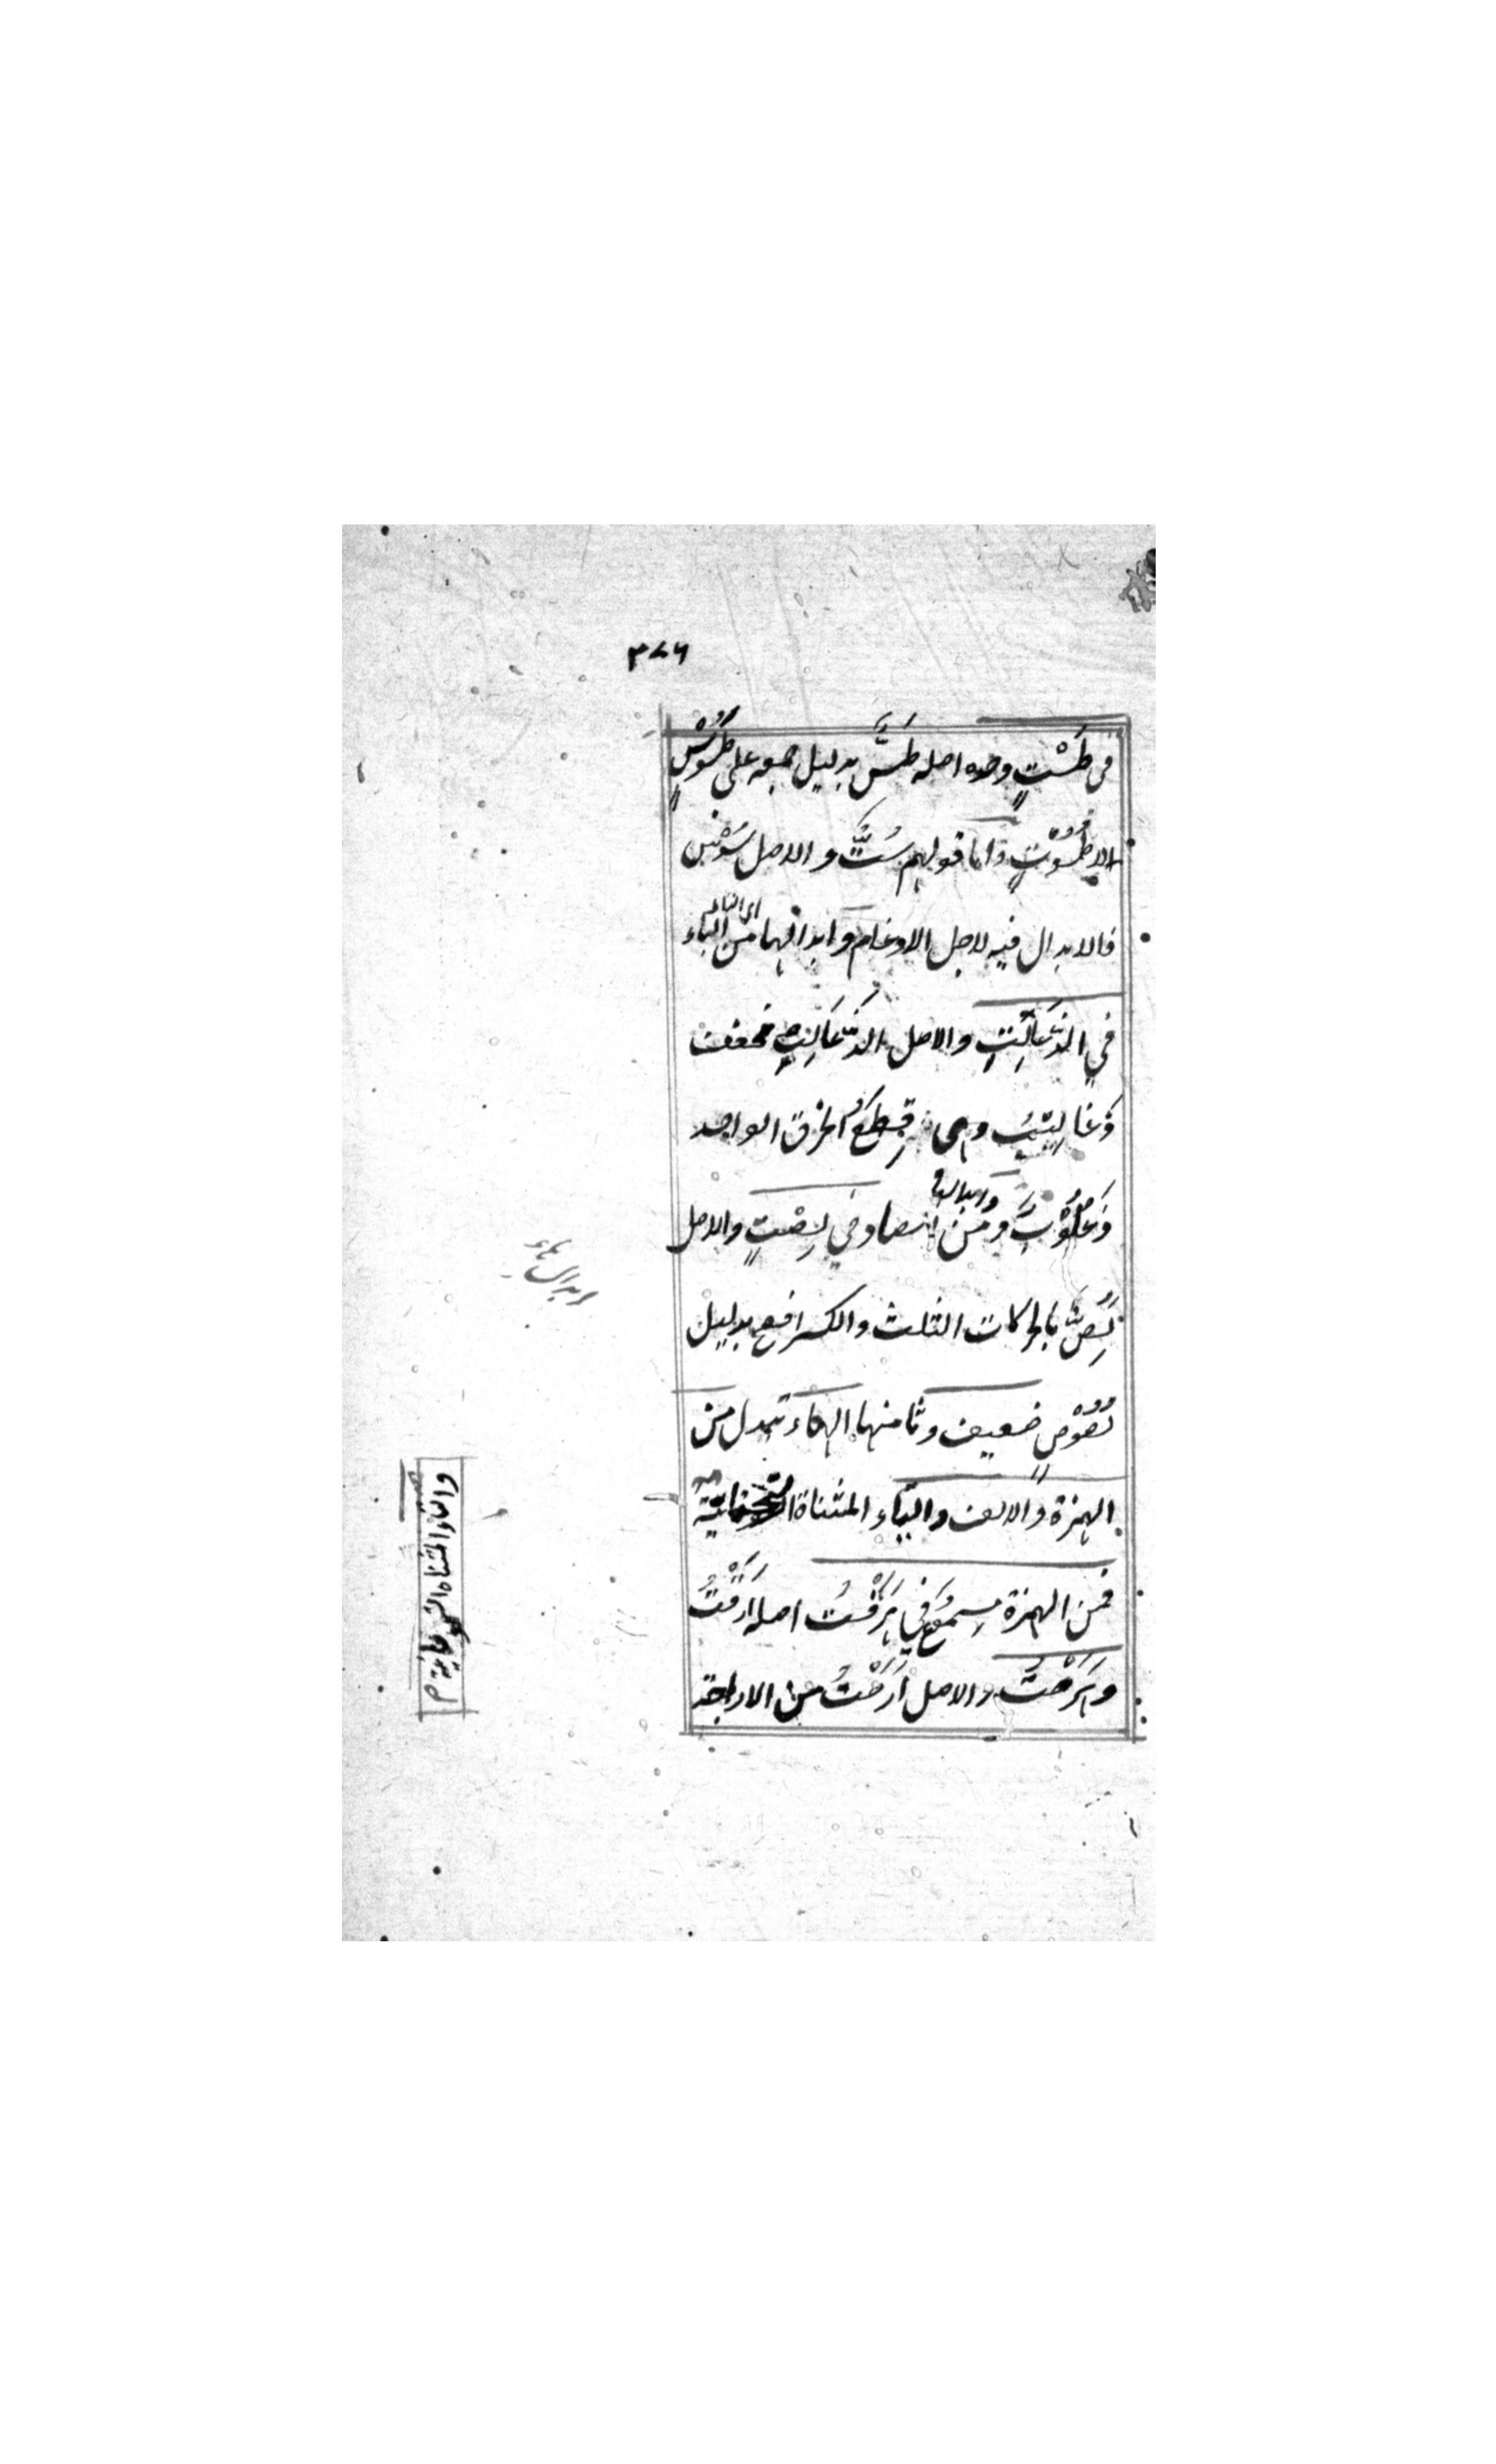 ٣٧٦
فى طَسْتٍ وحده اصله طَسٌّ بدليل جمعه على طُسُوْسٍ
الا طُسُوْتٍ واما قولهم سِتٌّ والاصل سُدْسٌ
فالابدال فيه لاجل الادغام وابدالها من الباء
في الذَّعَالِتِ والاصل الذَّعَالِبِ مخفف
ذَعَالِيْبُ وهى قِطَعُ الخرق الواحد
ذُعْلُوْبٌ ومن الصاد في لِصْتٍ والاصل
لِصٌّ بالحركات الثلث والكسر افصح بدليل
لُصُوْصٍ ضعيف وثامنها الهاء تبدل من
الهمزة والالف والياء المثناة التحتانية
فمن الهمزة مسموع في هَرَقْتُ اصله اَرَقْتُ
وهَرَحْتُ والاصل اَرَحْتُ من الاراحة
ابدال هاء
والتاء المثناة الفوقانية م